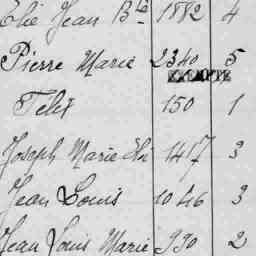 Elie Jean Bte 1882 4
Pierre Marie 2340 5
EXEMPTE
Felix 150 1
Joseph Marie 1417 3
Jean Louis 1046 3
Jean Louis Marie 990 2